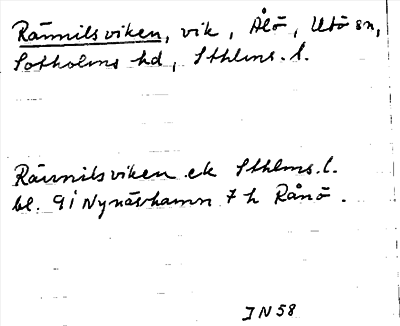 Rännilsviken, vik, Ålö, Utö sn,
Sotholms hd, Sthlms. l.
Rännilsviken ek Sthlms. l.
bl. 9i Nynäshamn 7 h Rånö.
JN 58